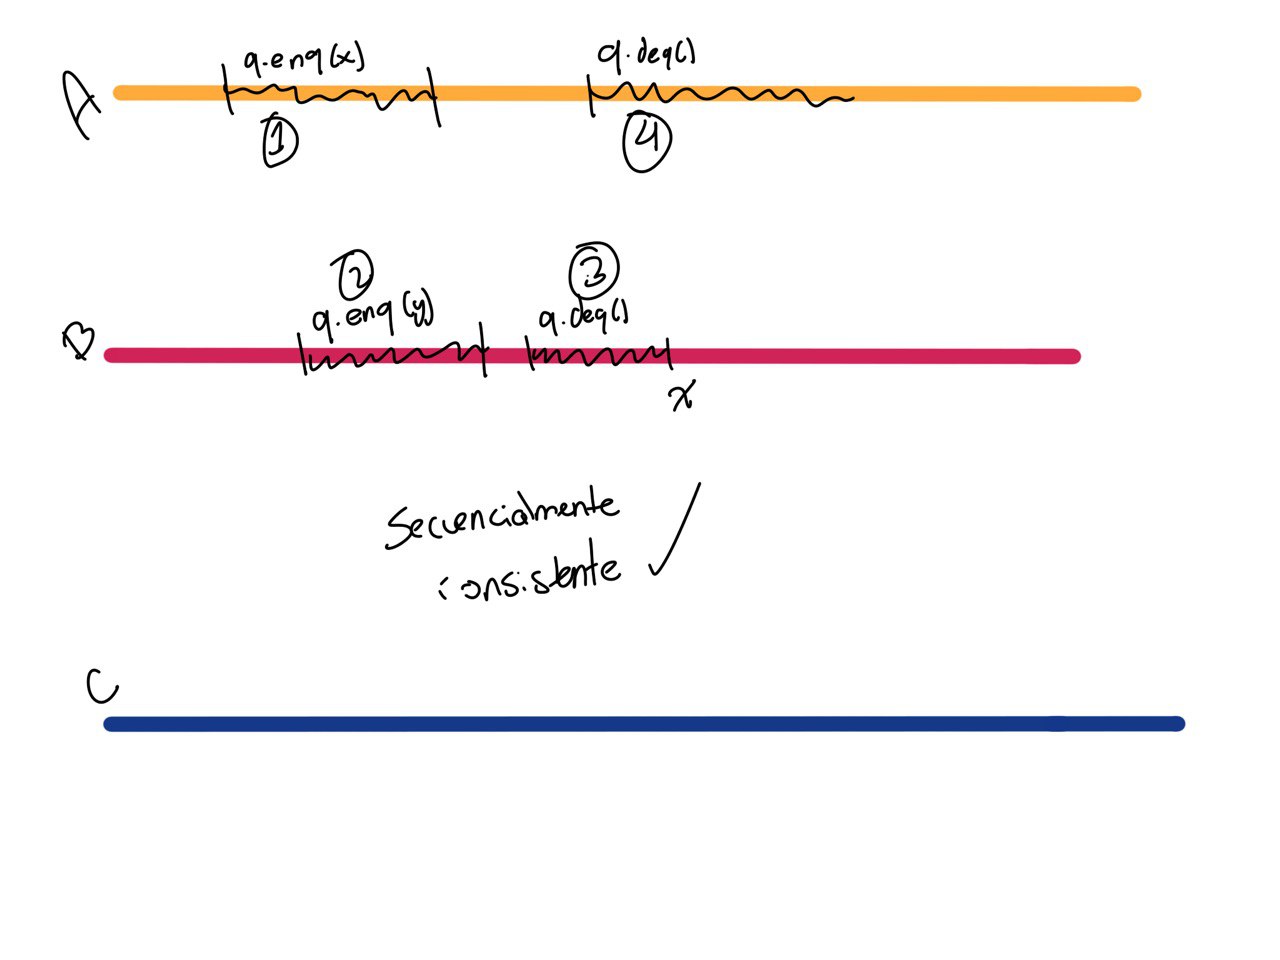 A
q.enq(x)
q.deq()
1
4
2
3
B
q.enq(y)
q.deq()
x
Secuencialmente
consistente ✓
C